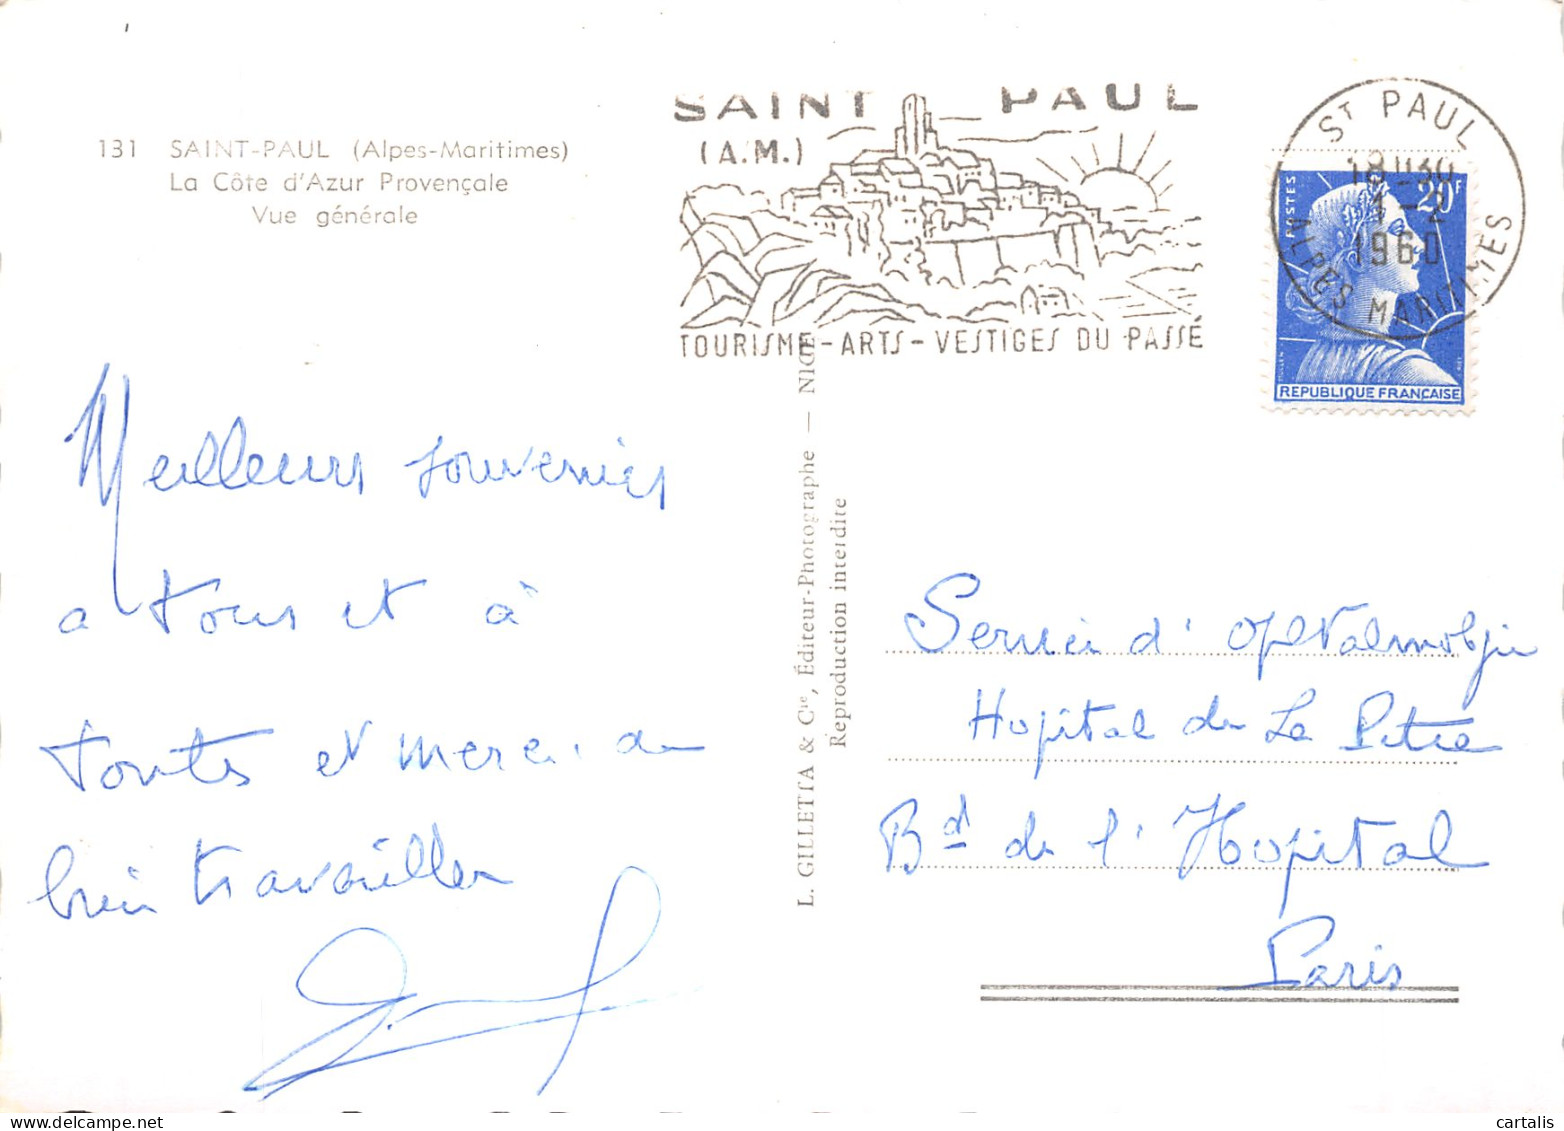 131 SAINT-PAUL (Alpes-Maritimes)
La Côte d'Azur Provençale
Vue générale
SAINT PAUL
(A.M.)
TOURISME - ARTS - VESTIGES DU PASSÉ
ST PAUL
18H30
1-2
1960
ALPES MARITIMES
POSTES
20F
REPUBLIQUE FRANÇAISE
Meilleurs souvenirs
a tous et à
toutes et merci de
bien travailler
L. GILLETTA & Cie, Éditeur-Photographe — NICE
Reproduction interdite
Service d'Ophtalmologie
Hopital de La Pitie
Bd de l'Hopital
Paris
cartalis